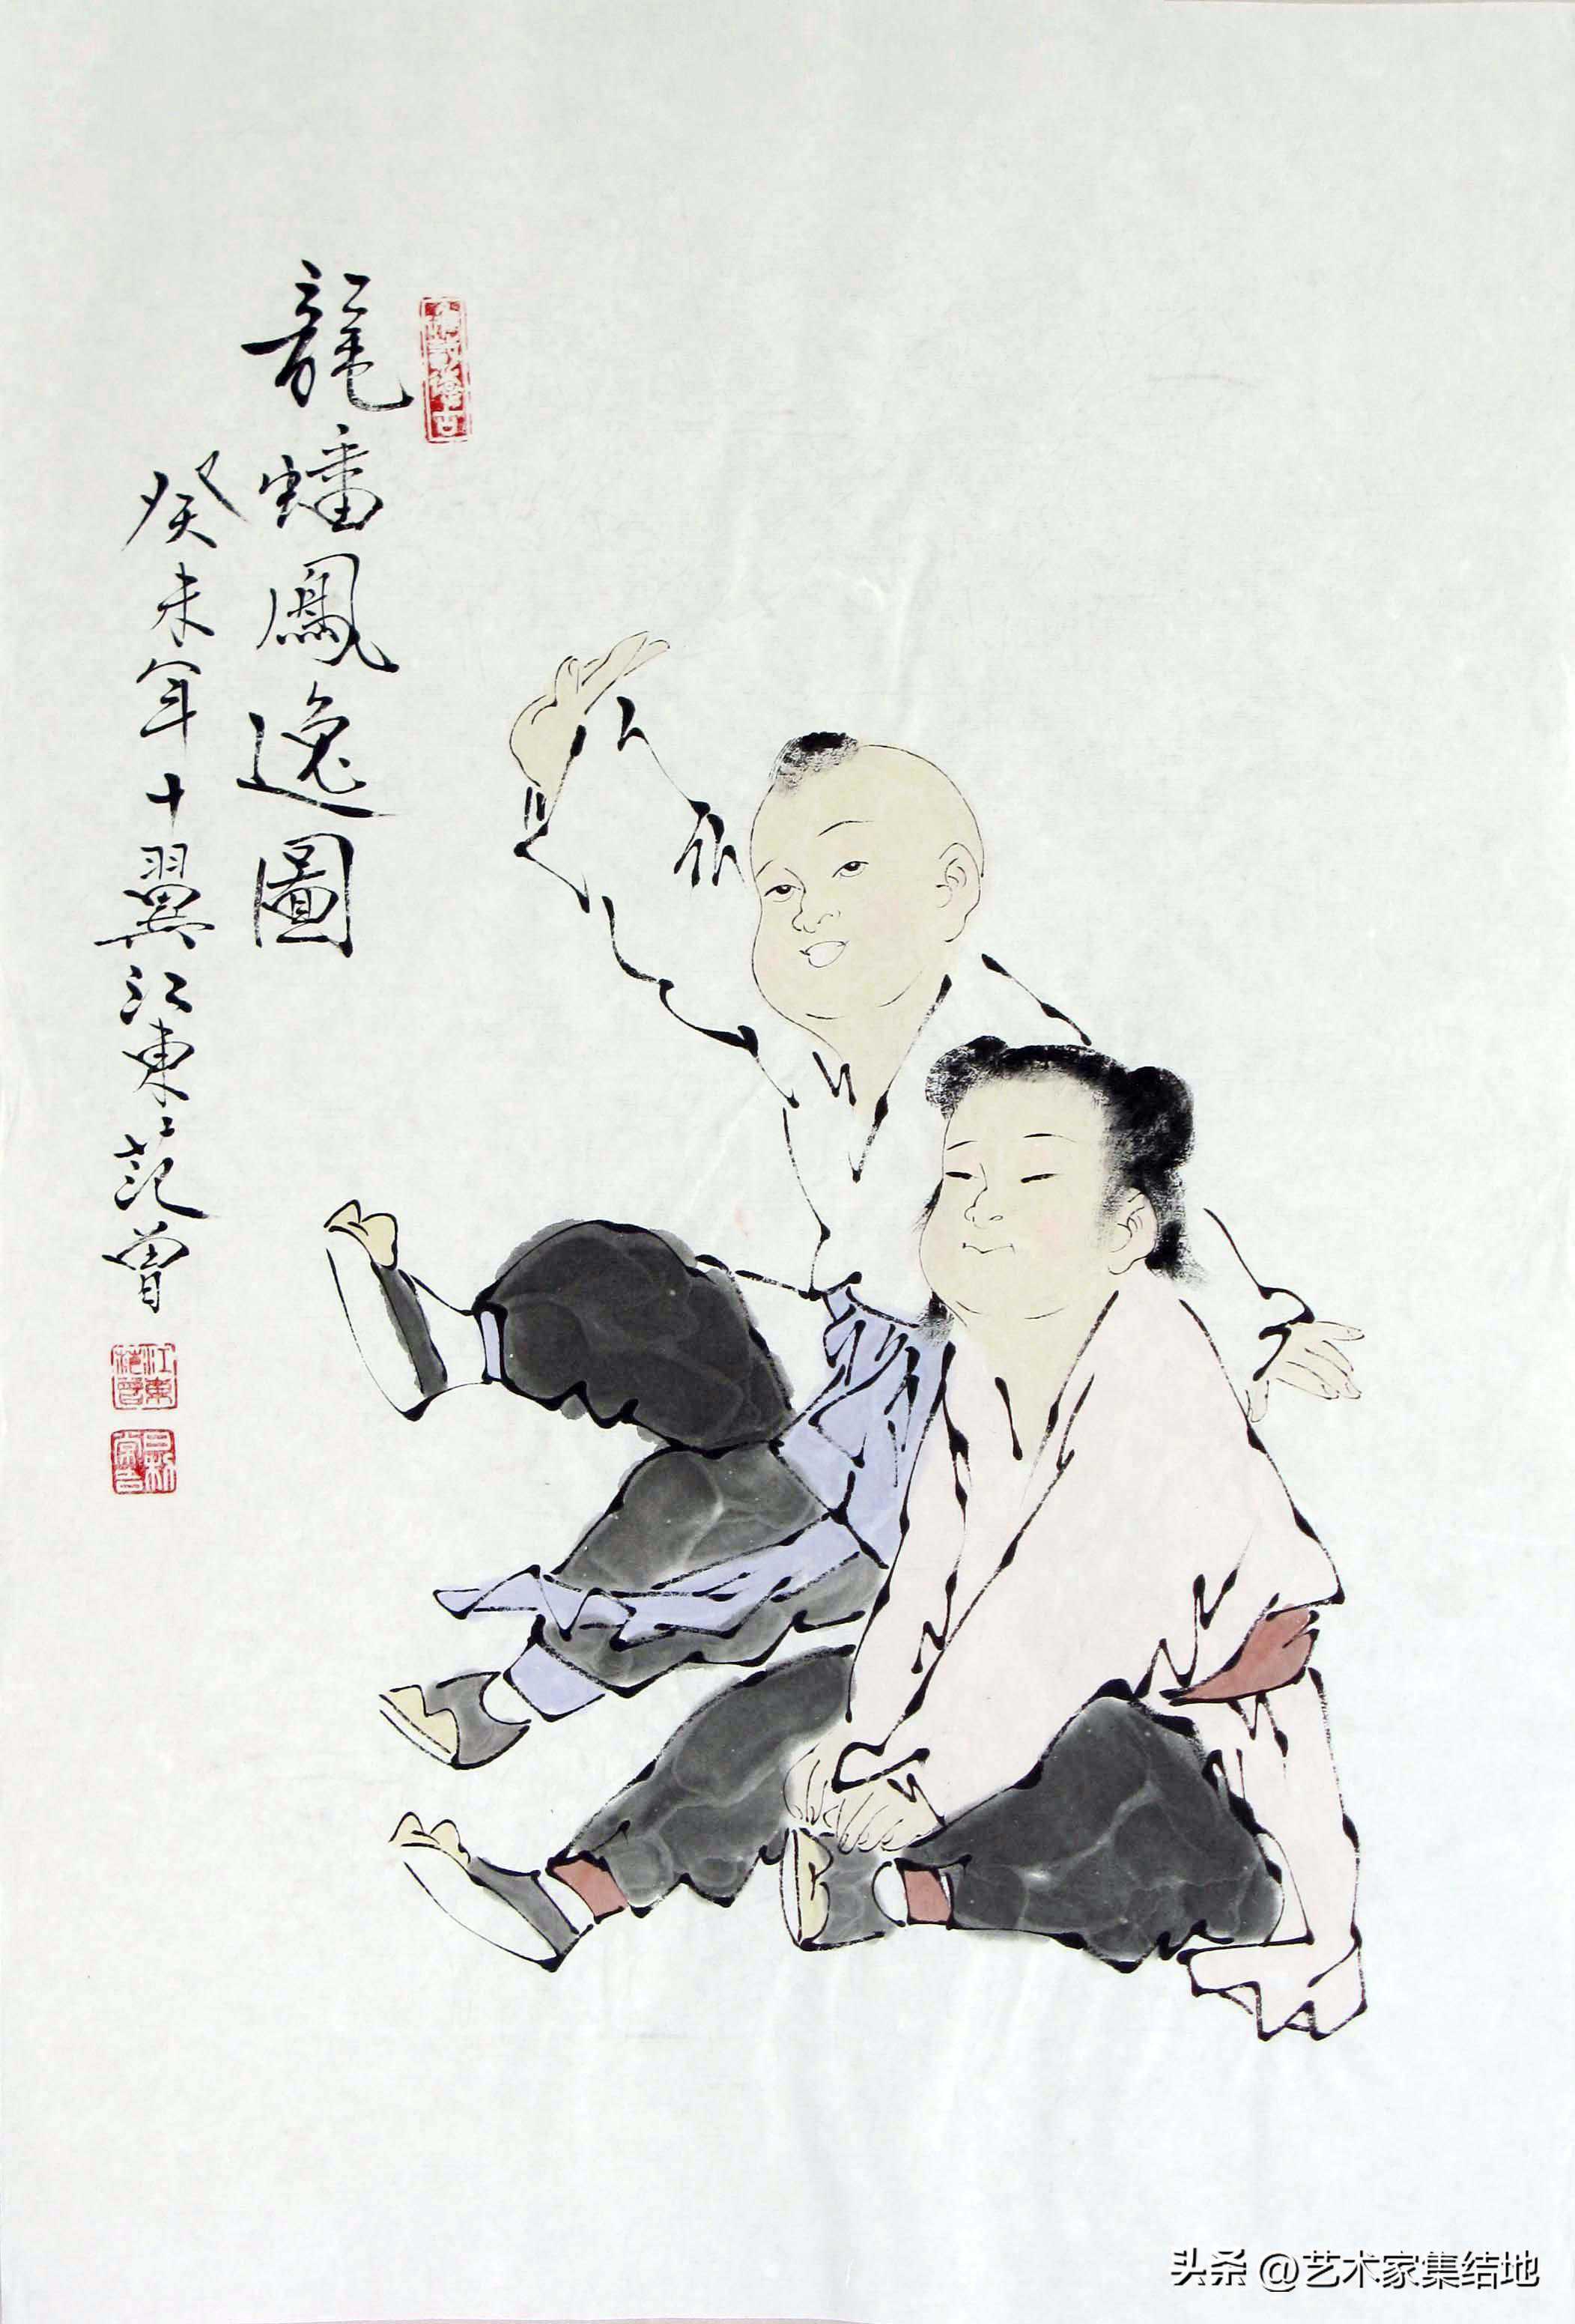 龍蟠鳳逸圖
癸未年十翼江東范曾
江東范曾
头条 @艺术家集结地